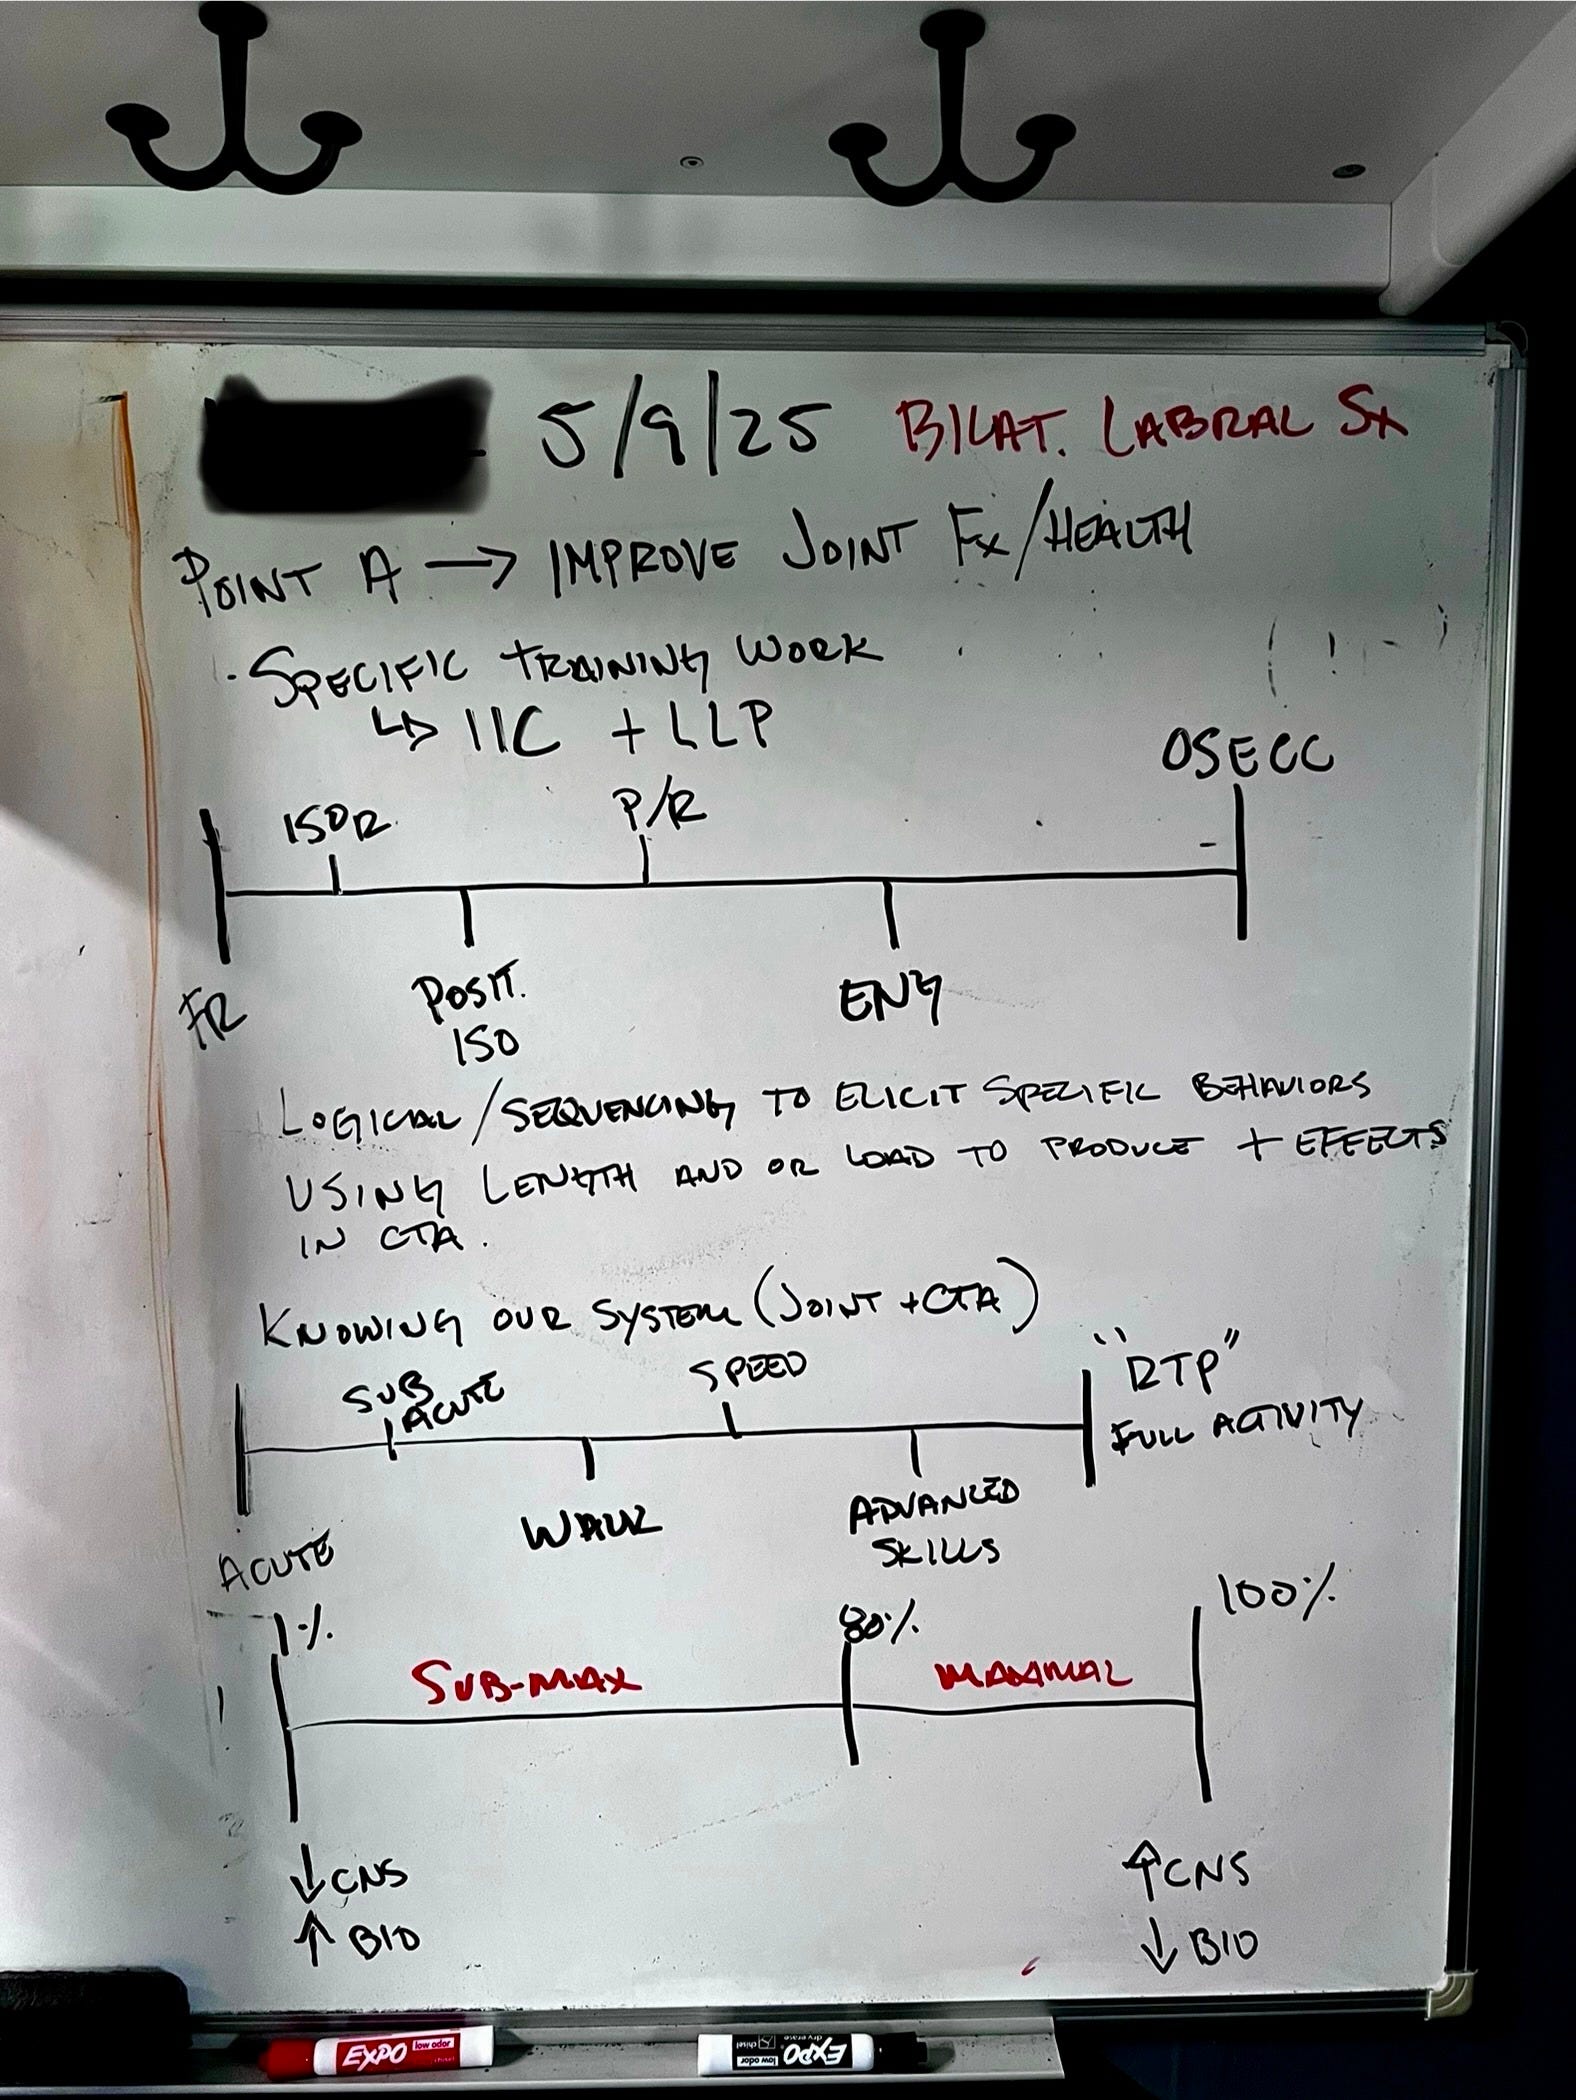 5/9/25 BILAT. LABRAL Sx
POINT A → IMPROVE JOINT Fx/HEALTH
· SPECIFIC TRAINING WORK
↳ IIC + LLP
OSECC
ISOR P/R
FR POSIT. ISO ENG
LOGICAL/SEQUENCING TO ELICIT SPECIFIC BEHAVIORS
USING LENGTH AND OR LOAD TO PRODUCE + EFFECTS
IN CTA.
KNOWING OUR SYSTEM (JOINT + CTA)
SUB ACUTE SPEED "RTP"
FULL ACTIVITY
ACUTE WALK ADVANCED SKILLS
1% 80% 100%
SUB-MAX MAXIMAL
↓ CNS ↑ CNS
↑ BIO ↓ BIO
EXPO low odor chisel
EXPO low odor chisel dry erase